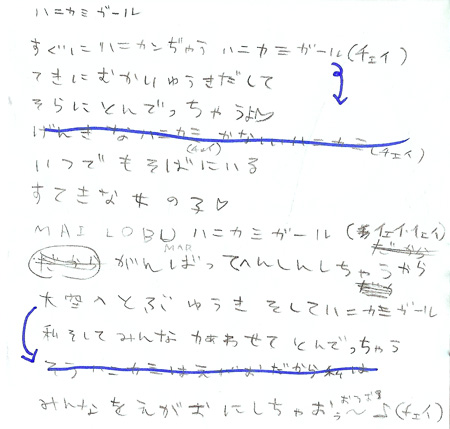 ハニカミガール
すぐにハニカンぢゃう ハニカミガール(チェイ)
てきにむかいゆうきだして
そらにとんでっちゃうよ♡
げんきなハニカミ (チェイ)
いつでもそばにいる
すてきな女の子♡
MAI LOBU ハニカミガール (イェイ・イェイ)
だから がんばってへんしんしちゃうから
大空へとぶゆうき そしてハニカミガール
私そしてみんな 力あわせて とんでっちゃう
そうハニカミは だから私は
みんなをえがおにしちゃおぅ〜♪(チェイ)